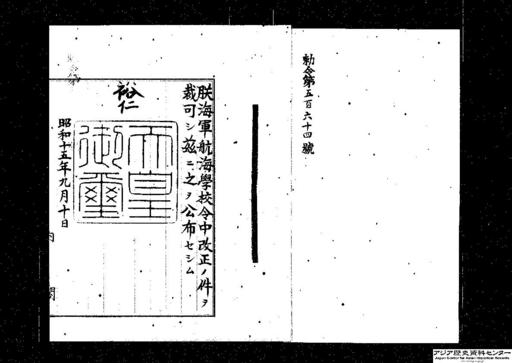 勅令第五百六十四號
朕海軍航海學校令中改正ノ件ヲ
裁可シ茲ニ之ヲ公布セシム
裕仁
天皇
御璽
昭和十五年九月十日
内
閣
アジア歴史資料センター
Japan Center for Asian Historical Records